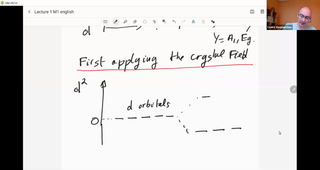 Lecture 1 M1 english
d
Y = A₁, Eg.
First applying the crystal Field
d²
d orbitals
0